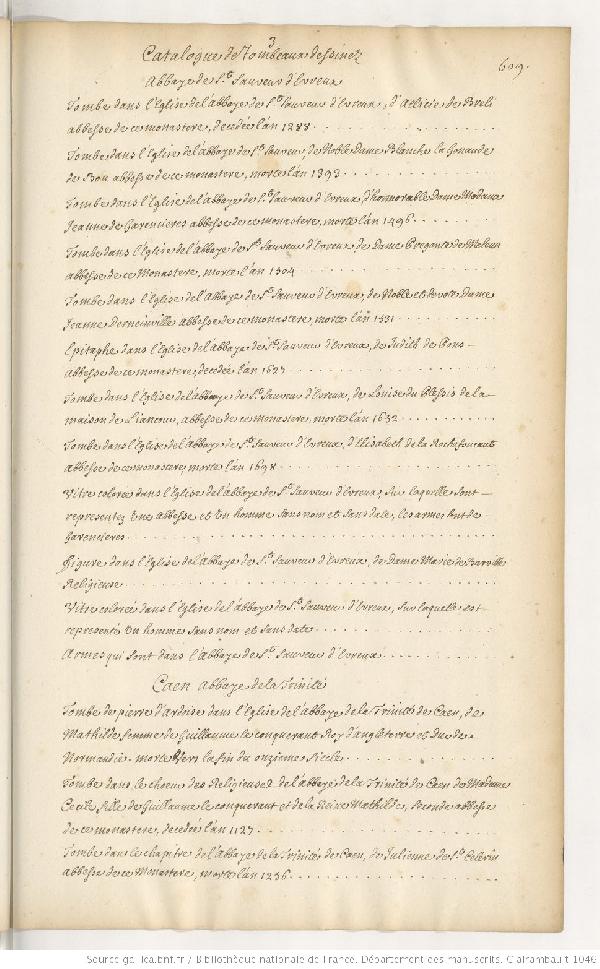 3
Catalogue de Tombeaux dessinez
609.
Abbaye de St. Sauveur d'Evreux
Tombe dans l'Eglise de l'abbaye de St. Sauveur d'Evreux, d'Allicie de
abbesse de ce monastere, decedée l'an 1288
Tombe dans l'Eglise de l'abbaye de St. Sauveur, de Noble Dame Blanche la
de abbesse de ce monastere, morte l'an 1393
Tombe dans l'Eglise de l'abbaye de St. Sauveur d'Evreux, d'honnorable Dame Madame
Jeanne de Garencieres abbesse de ce monastere, morte l'an 1496
Tombe dans l'Eglise de l'abbaye de St. Sauveur d'Evreux de Dame de Melun
abbesse de ce Monastere, morte l'an 1504
Tombe dans l'Eglise de l'abbaye de St. Sauveur d'Evreux, de Noble et devote Dame
Jeanne abbesse de ce monastere, morte l'an 1531
Epitaphe dans l'Eglise de l'abbaye de St. Sauveur d'Evreux, de Judith de Pons
abbesse de ce monastere, decedée l'an
Tombe dans l'Eglise de l'abbaye de St. Sauveur d'Evreux, de Louise du Plessis de la
maison de Liancour, abbesse de ce monastere, morte l'an 1652
Tombe dans l'Eglise de l'abbaye de St. Sauveur d'Evreux, d'Elisabeth de la Rochefoucault
abbesse de ce monastere, morte l'an 1698
Vitre colorée dans l'Eglise de l'abbaye de St. Sauveur d'Evreux, sur laquelle sont
representez une abbesse et un homme sans nom et sans date, les armes sont de
Garencieres
Figure dans l'Eglise de l'abbaye de St. Sauveur d'Evreux, de Dame Marie de Barville
Religieuse
Vitre colorée dans l'Eglise de l'abbaye de St. Sauveur d'Evreux, sur laquelle est
representé un homme sans nom et sans date
Armes qui sont dans l'Abbaye de St. Sauveur d'Evreux
Caen abbaye de la Trinité
Tombe de pierre d'ardoise dans l'Eglise de l'abbaye de la Trinité de Caen, de
Mathilde femme de Guillaume le conquerant Roy d'angleterre et Duc de
Normandie, morte vers la fin du onzieme siecle
Tombe dans le choeur des Religieuses de l'abbaye de la Trinité de Caen de Madame
Cecile fille de Guillaume le conquerant et de la Reine Mathilde, seconde abbesse
de ce monastere, decedée l'an 1127
Tombe dans le chapitre de l'abbaye de la Trinité de Caen, de Julienne de St. Celerin
abbesse de ce Monastere, morte l'an 1236
Source gallica.bnf.fr / Bibliothèque nationale de France. Département des manuscrits. Clairambault 1046